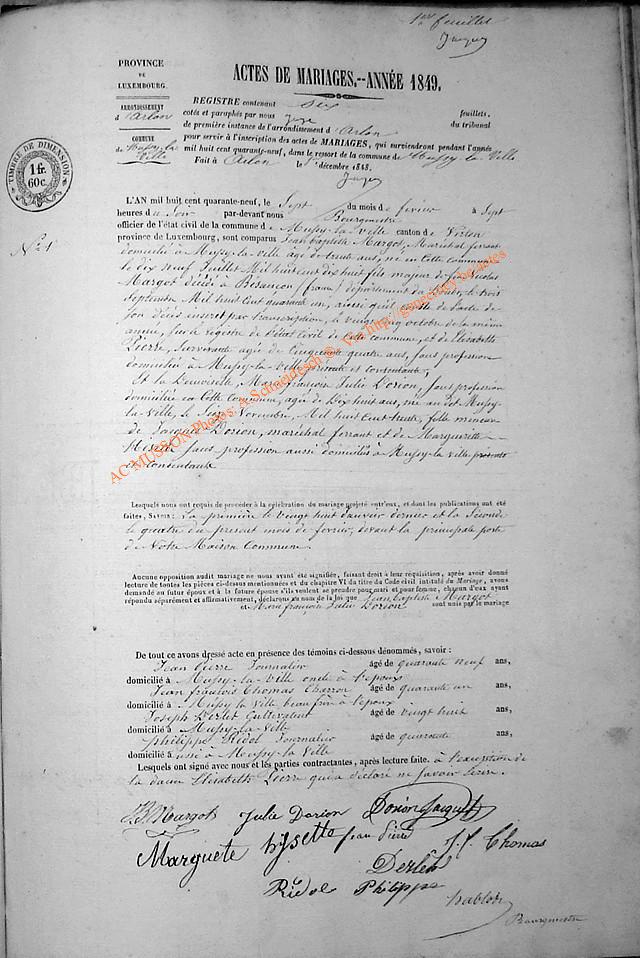 1er feuillet
PROVINCE
DE
LUXEMBOURG.
ARRONDISSEMENT
d'Arlon
COMMUNE
de Mussy-la-
Ville
TIMBRE DE DIMENSION
1 fr.
60 c.
N° 1
ACTES DE MARIAGES.--ANNÉE 1849.
REGISTRE contenant six feuillets.
cotés et paraphés par nous Juge du tribunal
de première instance de l'arrondissement d'Arlon
pour servir à l'inscription des actes de MARIAGES, qui surviendront pendant l'année
mil huit cent quarante-neuf, dans le ressort de la commune de Mussy-la-Ville
Fait à Arlon le décembre 1848.
L'AN mil huit cent quarante-neuf, le Sept du mois de février à Sept
heures du Soir par-devant nous Bourgmestre
officier de l'état civil de la commune de Mussy-la-ville canton de Virton
province de Luxembourg, sont comparus Jean baptiste Margot, Maréchal ferrant
domicilié à Mussy-la-ville agé de trente ans, né en Cette commune
le dix neuf Juillet Mil huit cent dix huit fils majeur de Jean Nicolas
Margot décédé à Besançon, france, département du Doubs, le trois
Septembre Mil huit Cent quarante un, ainsi qu'il conste de l'acte de
Son décès inscrit par transcription, le vingt cinq octobre de la même
année, sur le registre de l'état Civil de Cette commune, et de Elisabeth
Pierre, Survivante agée de Cinquante quatre ans, sans profession
domiciliée à Mussy-la-Ville présente et Consentante;
Et la Demoiselle, Marie françoise Julie Dorion, sans profession
domiciliée en Cette Commune, agée de Dix huit ans, née au dit Mussy-
la-Ville, le Six Novembre, Mil huit Cent trente, fille mineure
de Jacques Dorion, maréchal ferrant et de Marguerite
Hisette sans profession aussi domiciliés à Mussy-la-Ville présents
et consentants
Lesquels nous ont requis de procéder à la célébration du mariage projeté entr'eux, et dont les publications ont été
faites, SAVOIR: La première le vingt huit Janvier dernier et la Seconde
le quatre du present mois de février, devant la principale porte
de Notre Maison Commune
Aucune opposition audit mariage ne nous ayant été signifiée, faisant droit à leur réquisition, après avoir donné
lecture de toutes les pièces ci-dessus mentionnées et du chapitre VI du titre du Code civil intitulé du Mariage, avons
demandé au futur époux et à la future épouse s'ils veulent se prendre pour mari et pour femme, chacun d'eux ayant
répondu séparément et affirmativement, déclarons au nom de la loi que Jean baptiste Margot
et Marie françoise Julie Dorion sont unis par le mariage
De tout ce avons dressé acte en présence des témoins ci-dessous dénommés, savoir :
Jean Pierre Journalier âgé de quarante neuf ans,
domicilié à Mussy-la-Ville oncle à l'epoux
Jean françois Thomas Charron âgé de quarante un ans,
domicilié à Mussy la Ville beau frère à l'epoux
Joseph Derlet Cultivateur âgé de vingt huit ans,
domicilié à Mussy-la-Ville
Philippe Ridol Journalier âgé de quarante ans,
domicilié à Mussy-la Ville
Lesquels ont signé avec nous et les parties contractantes, après lecture faite. à l'exception de
la dame Elisabeth Pierre qui a déclaré ne savoir Ecrire.
JB Margot Julie Dorion Dorion Jacques
Marguete hysette jean Pierre J. f. Thomas
Derlet
Ridol Philippe
Bourgmestre
AC MUSSON Photos: A. Schneidesch ®. Via http://geneology.be-actes